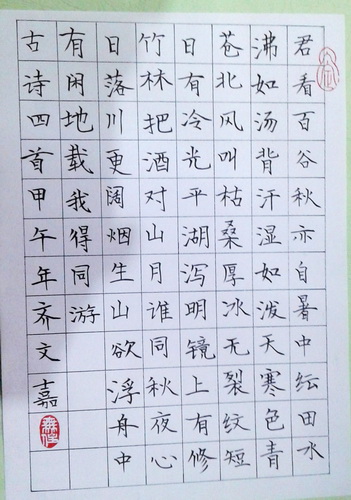 君看百谷秋亦自暑中纭田水
沸如汤背汗湿如泼天寒色青
苍北风叫枯桑厚冰无裂纹短
日有冷光平湖泻明镜上有修
竹林把酒对山月谁同秋夜心
日落川更阔烟生山欲浮舟中
有闲地载我得同游
古诗四首甲午年齐文士嘉